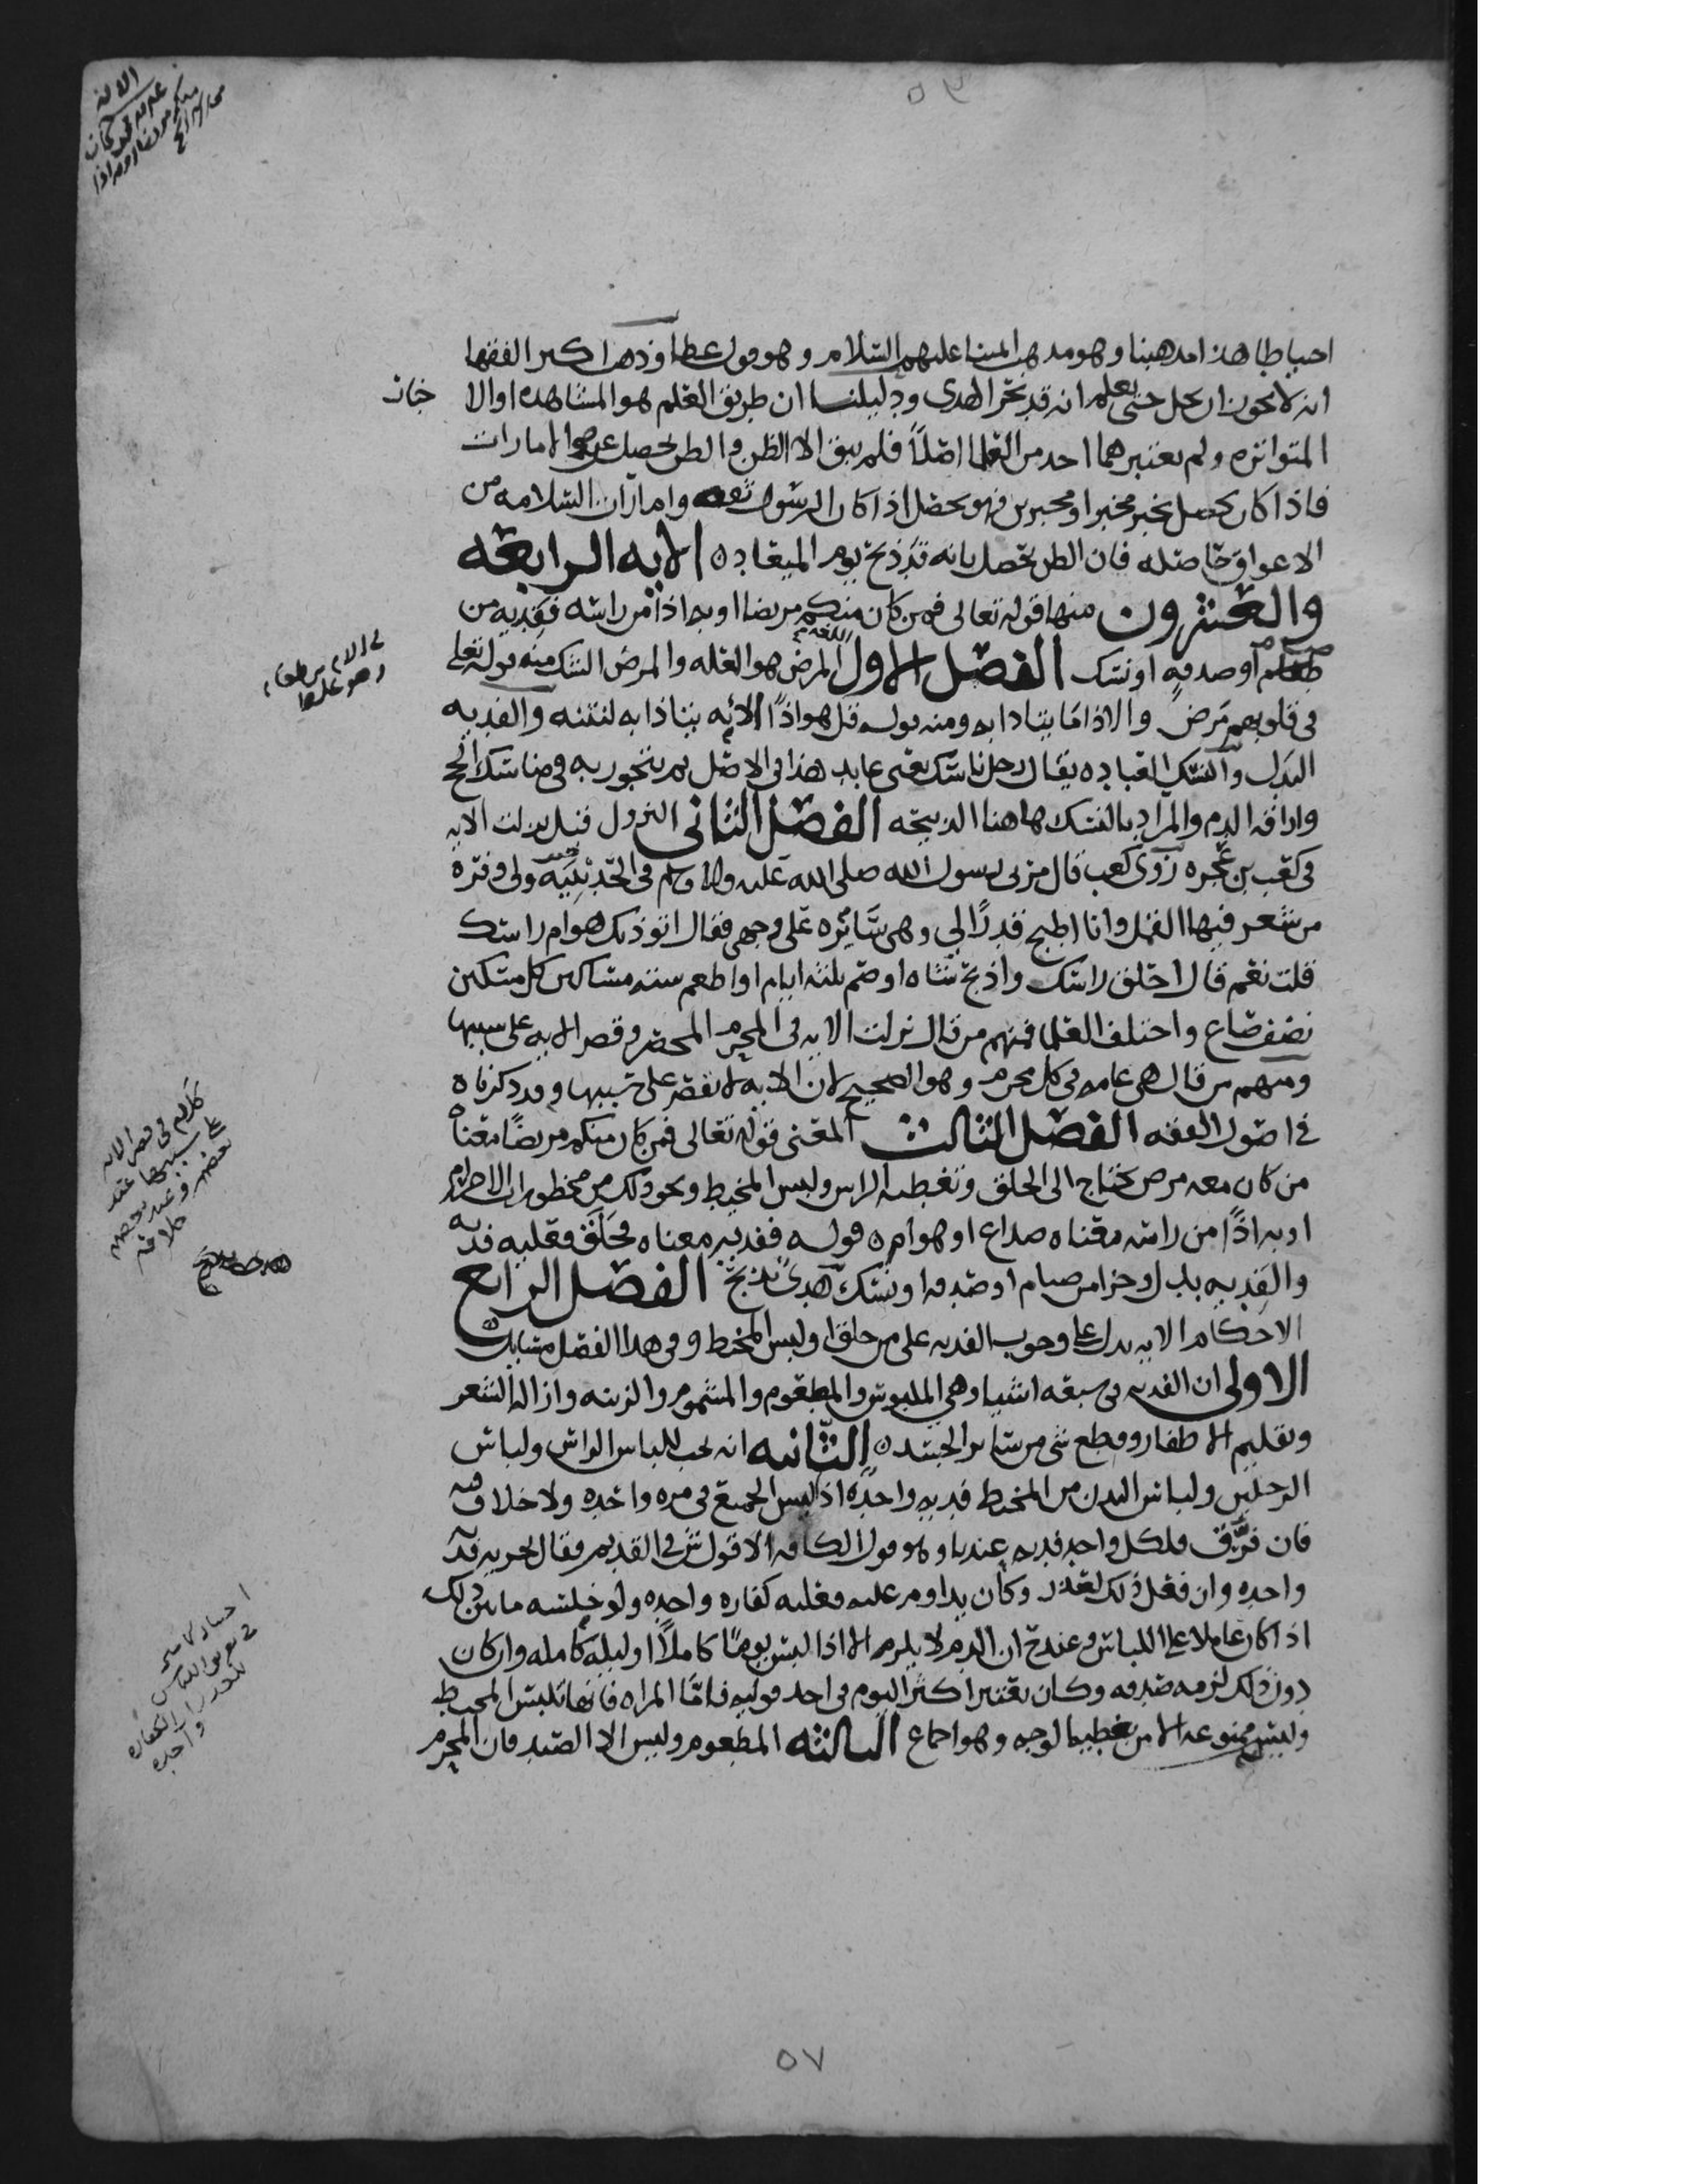 احتياطا هذا مذهبنا وهو مذهب ائمتنا عليهم السلام وهو قول عطا وذهب اكثر الفقها
انه لا يجوز ان يحل حتى يعلم انه قد نحر الهدى ودليلنا ان طريق العلم هو المشاهده او الا خبار
المتواتره ولم يعتبرهما احد من العلما اصلًا فلم يبق الا الظن والظن يحصل عن الامارات
فاذا كان يحصل بخبر مخبر او مخبرين فهو يحصل اذا كان الرسول ثقه وامارات السلامه من
الاعواق حاصله فان الظن يحصل بانه قد ذبح يوم الميعاد ه الايه الرابعه
والعشرون منها قوله تعالى فمن كان منكم مريضا او به اذا من راسه ففديه من
صيام او صدقهٍ او نسك الفصل الاول اللغه المرض هو العله والمرض الشك منه قوله تعلى
فى قلوبهم مرض والاذا ما يتاذا به ومنه قوله قل هو اذًا لانه يتاذا به لنتنه والفديه
البدل والنسك العباده يقال رجل ناسك يعنى عابد هذا فى الاصل ثم تجوز به فى مناسك الحج
واراقه الدم والمراد بالنسك هاهنا الذبيحه الفصل الثانى النزول قيل نزلت الايه
فى كعب بن عجره روى كعب قال مر بى رسول الله صلى الله عليه واله وسلم فى الحديبيه ولى وفره
من شعر فيها القمل وانا اطبخ قدرًا لي وهى تناثره على وجهى فقال اتوذيك هوام راسك
قلت نعم قال احلق راسك واذبح شاه او صم ثلثه ايام او اطعم سته مساكين كل مسكين
نصف صاع واختلف العلما فمنهم من قال نزلت الايه فى المحرم المحصر وقصر الايه على سببها
ومنهم من قال هى عامه فى كل محرم وهو الصحيح لان الايه لا تقصر على سببها وقد ذكرناه
في اصول الفقه الفصل الثالث المعنى قوله تعالى فمن كان منكم مريضًا معناه
من كان معه مرض يحتاج الى الحلق وتغطيه الراس ولبس المخيط ونحو ذلك من محظورات الاحرام
او به اذًا من راسه معناه صداع او هوام ه قوله ففديه معناه فحلق فعليه فديه
والفديه بدل وجزا من صيام او صدقه او نسك هدى يذبح الفصل الرابع
الاحكام الايه تدل على وجوب الفديه على من حلق او لبس المخيط وفى هذا الفصل مسايل
الاولى ان الفديه فى سبعه اشيا وهى الملبوس والمطعوم والمشموم والزينه وازاله الشعر
وتقليم الاظفار وقطع شى من ساير الجسد ه الثانيه انه يجب للباس الراس ولباس
الرجلين ولباس البدن من المخيط فديه واحده اذا لبس الجميع فى مره واحده ولا خلاف فيه
فان فرّق فلكل واحد فديه عندنا وهو قول الكافه الا قول ش في القديم فقال تجزيه فديه
واحده وان فعل ذلك لعذر وكان يداوم عليه فعليه كفاره واحده ولو خلسه ما بين ذلك
اذا كان عاملا على اللباس وعند ح ان الدم لا يلزم الا اذا لبس يومًا كاملًا او ليله كامله وان كان
دون ذلك لزمه صدقه وكان يعتبر اكثر اليوم فى احد قوليه فامّا المراه فانها تلبس المخيط
وليس ممنوعه الا من تغطيه الوجه وهو اجماع الثالثه المطعوم وليس الا الصيد فان المحرم
كلام فى قصر الايه
على سببها عند
بعضهم وعند بعضهم
خلافه
٥٧